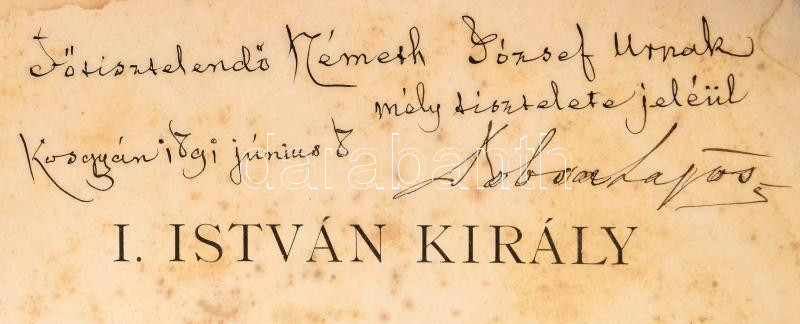 Főtisztelendő Németh József Urnak
mély tisztelete jeléül
1891 június 8
Lajos
darabanth
I. ISTVÁN KIRÁLY